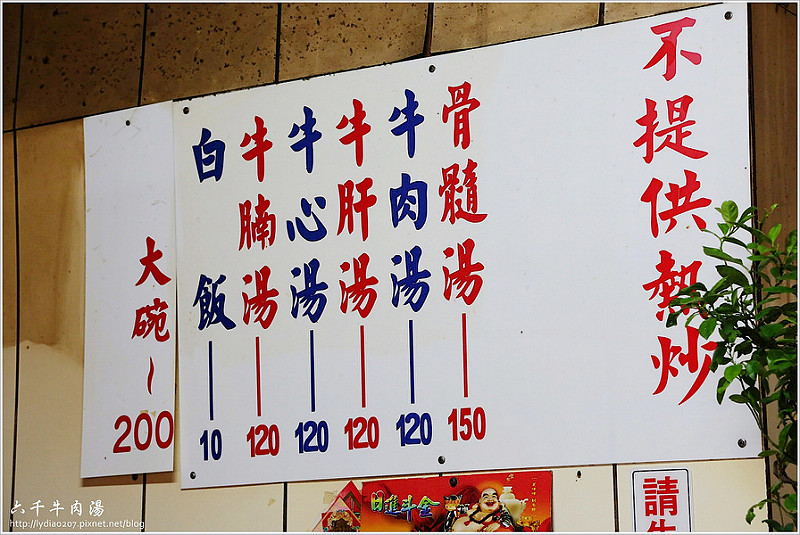 不提供熱炒
骨髓湯 150
牛肉湯 120
牛肝湯 120
牛心湯 120
牛腩湯 120
白飯 10
大碗~200
日進斗金
請
六千牛肉湯
http://lydia0207.pixnet.net/blog